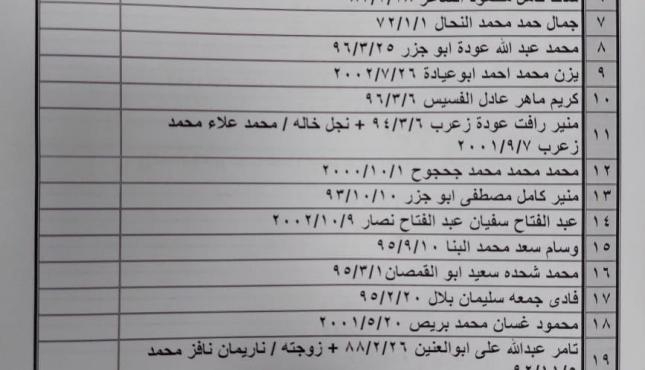 ٧ جمال حمد محمد النحال ٧٢/١/١
٨ محمد عبد الله عودة ابو جزر ٩٦/٣/٢٥
٩ يزن محمد احمد ابوعيادة ٢٠٠٢/٧/٢٦
١٠ كريم ماهر عادل الفسيس ٩٦/٣/٦
١١ منير رافت عودة زعرب ٩٤/٣/٦ + نجل خاله / محمد علاء محمد
زعرب ٢٠٠١/٩/٧
١٢ محمد محمد محمد جحجوح ٢٠٠٠/١٠/١
١٣ منير كامل مصطفى ابو جزر ٩٣/١٠/١٠
١٤ عبد الفتاح سفيان عبد الفتاح نصار ٢٠٠٢/١٠/٩
١٥ وسام سعد محمد البنا ٩٥/٩/١٠
١٦ محمد شحده سعيد ابو القمصان ٩٥/٣/١
١٧ فادى جمعه سليمان بلال ٩٥/٢/٢٠
١٨ محمود غسان محمد بريص ٢٠٠١/٥/٢٠
١٩ تامر عبدالله على ابوالعنين ٨٨/٢/٢٦ + زوجته / ناريمان نافز محمد